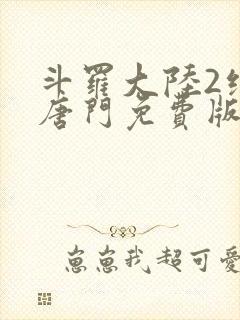 斗羅大陸2絕
唐門免費版
崽崽我超可愛